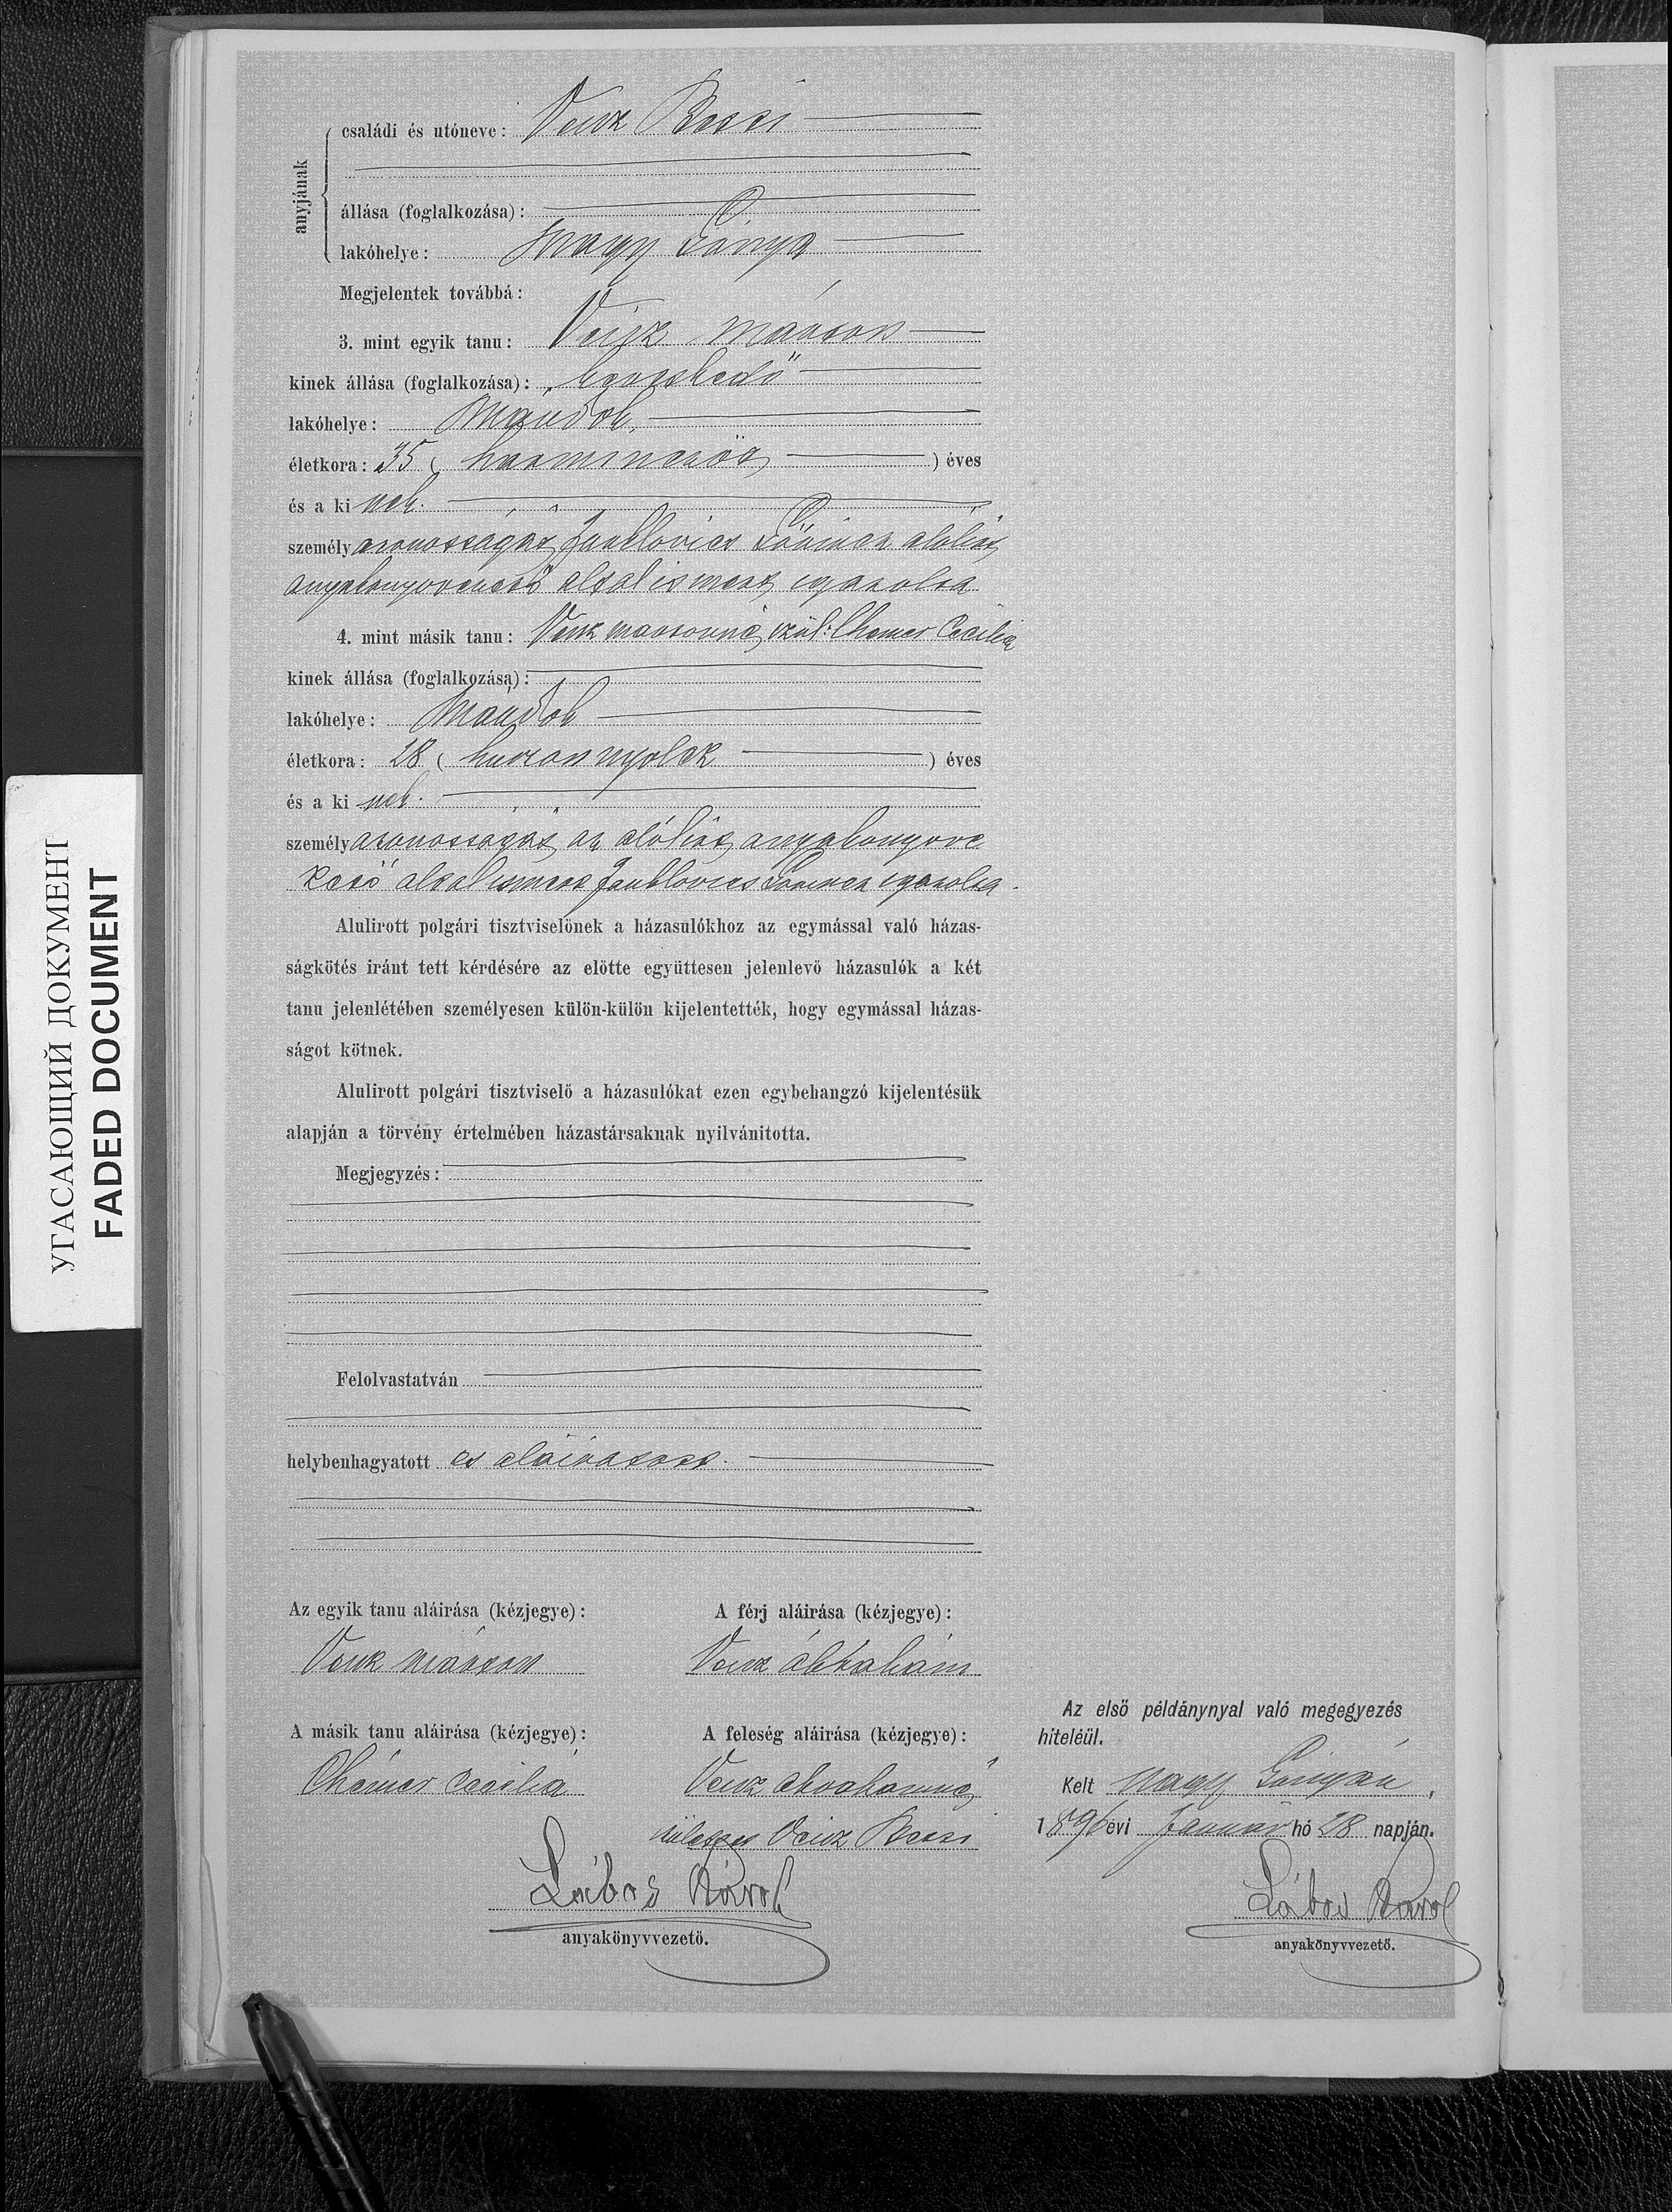 anyjának
családi és utóneve: Veisz Bessi
állása (foglalkozása):
lakóhelye: Nagy Lónya
Megjelentek továbbá:
3. mint egyik tanu: Veisz Márton
kinek állása (foglalkozása): kereskedő
lakóhelye: Mándok
életkora: 35 ( harmincöt ) éves
és a ki nek.
személy azonosságát Janklovics alólirt
anyakönyvvezető által ismert igazolta
4. mint másik tanu: Veisz Mártonné szül: Chemer Cecilia
kinek állása (foglalkozása):
lakóhelye: Mándok
életkora: 28 ( huszonnyolcz ) éves
és a ki nek.
személy azonosságát az alólirt anyakönyvve
zető által ismert Janklovics igazolta.
Alulirott polgári tisztviselönek a házasulókhoz az egymással való házas-
ságkötés iránt tett kérdésére az elötte együttesen jelenlevö házasulók a két
tanu jelenlétében személyesen külön-külön kijelentették, hogy egymással házas-
ságot kötnek.
Alulirott polgári tisztviselö a házasulókat ezen egybehangzó kijelentésük
alapján a törvény értelmében házastársaknak nyilvánitotta.
Megjegyzés:
Felolvastatván
helybenhagyatott és aláiratott.
Az egyik tanu aláirása (kézjegye): A férj aláirása (kézjegye):
Veisz Márton Veisz Ábrahám
A másik tanu aláirása (kézjegye): A feleség aláirása (kézjegye):
Chémer Cecilia Veisz Abrahamné
született Veisz Bessi
Lábos Károly
anyakönyvvezetö.
Az elsö példánynyal való megegyezés
hiteléül.
Kelt Nagy Lónyán,
1896 évi Január hó 28 napján.
Lábos Károly
anyakönyvvezetö.
УГАСАЮЩИЙ ДОКУМЕНТ
FADED DOCUMENT